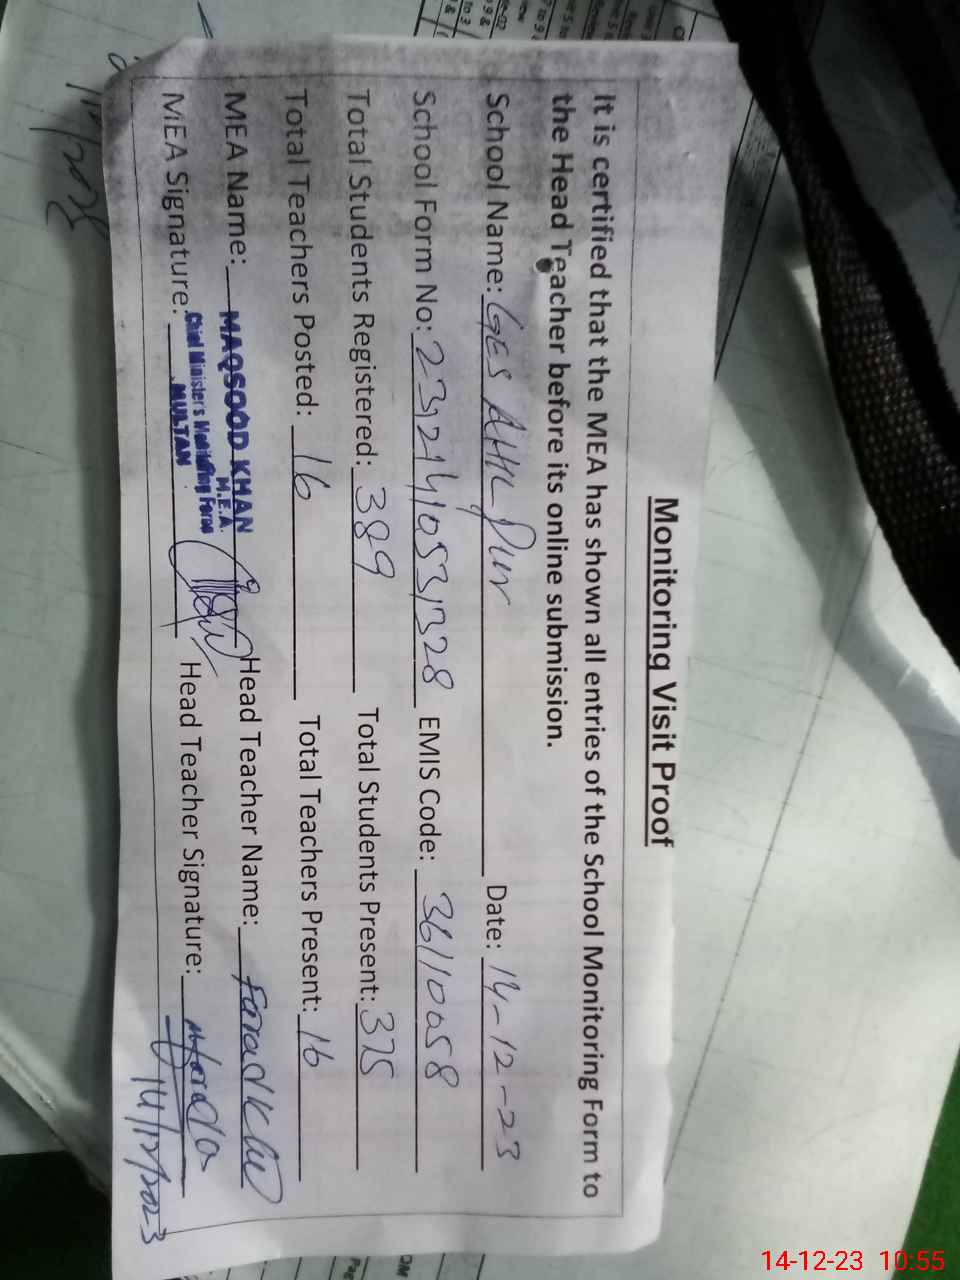 Monitoring Visit Proof
It is certified that the MEA has shown all entries of the School Monitoring Form to
the Head Teacher before its online submission.
School Name: GES Date: 14-12-23
School Form No: EMIS Code: 36110058
Total Students Registered: 389 Total Students Present: 375
Total Teachers Posted: 16 Total Teachers Present: 16
MEA Name: MAQSOOD KHAN Head Teacher Name:
M.E.A.
Chief Minister's Monitoring Force
MULTAN
MEA Signature: Head Teacher Signature:
14/12/2023
14-12-23 10:55